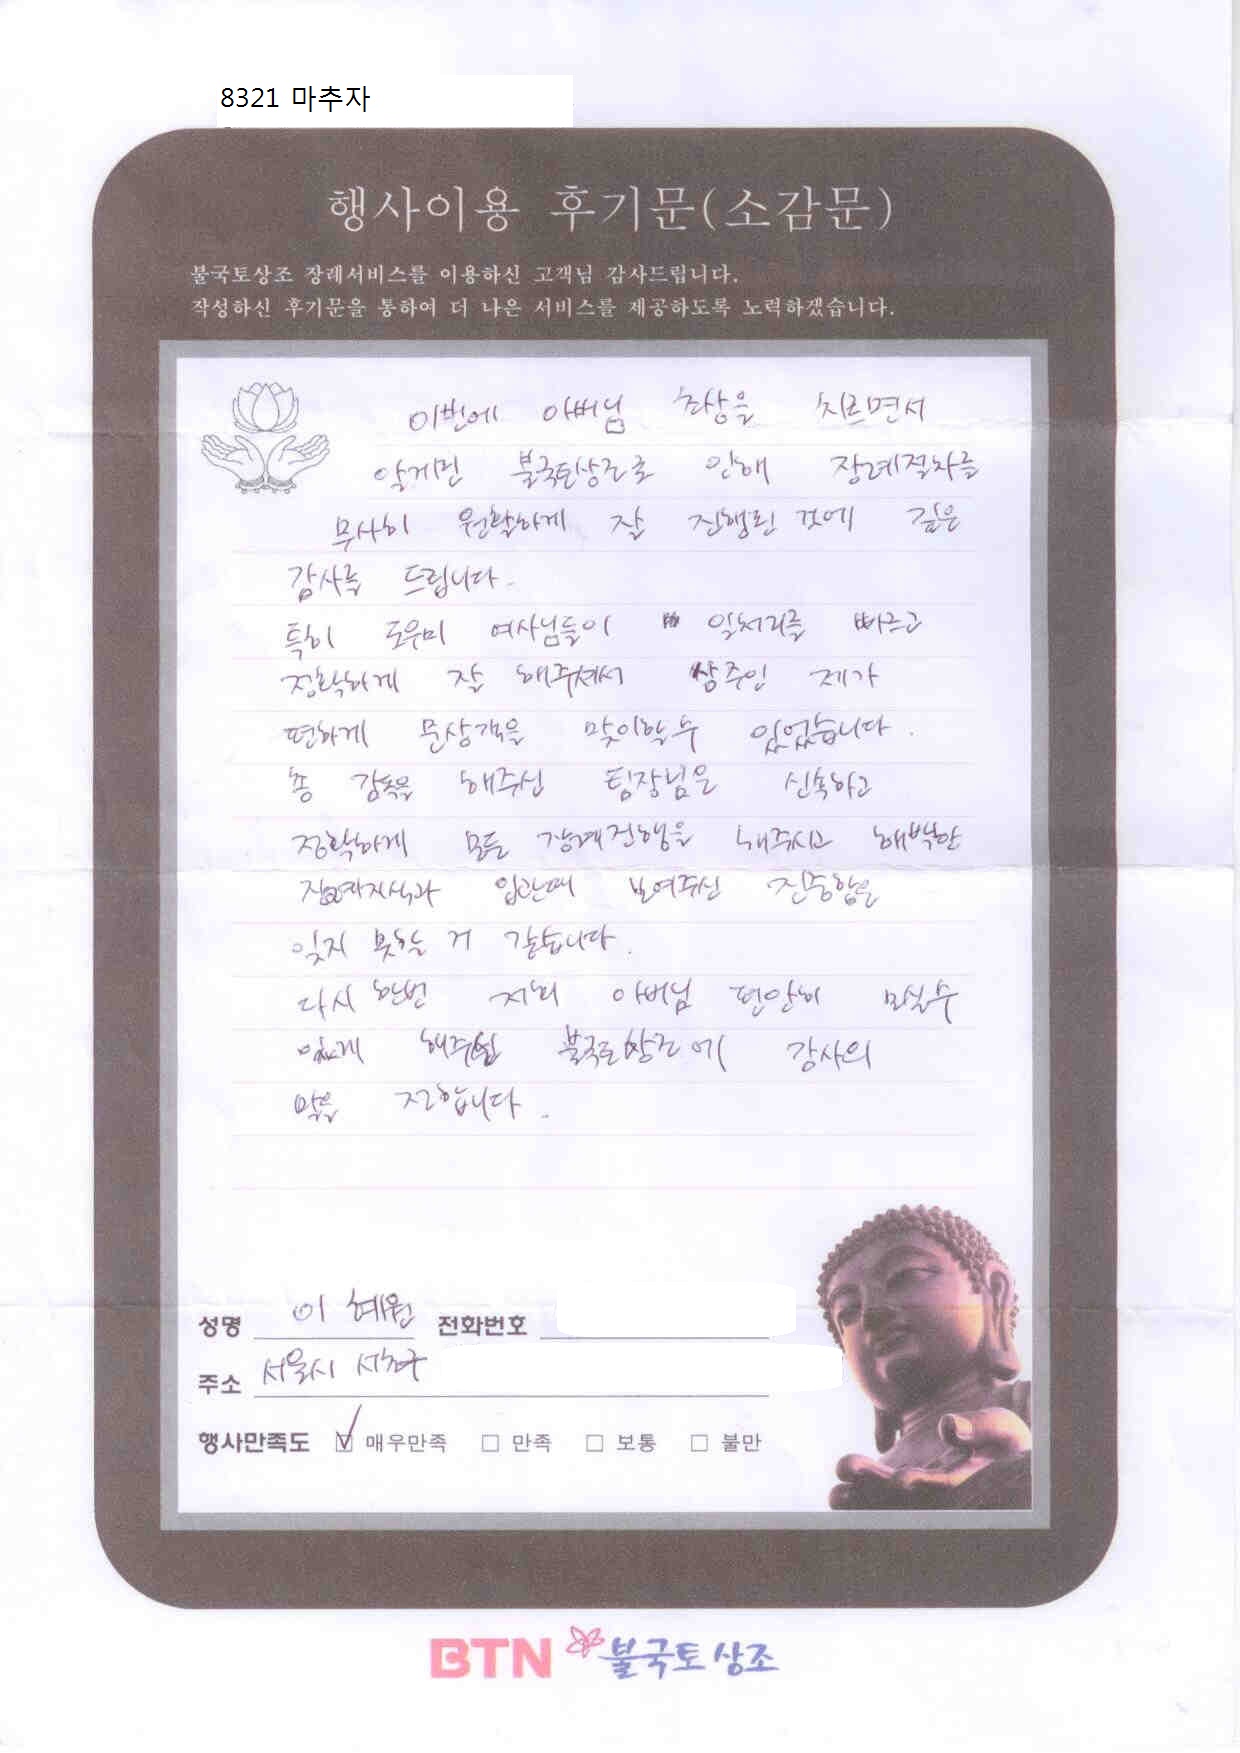 8321 마추자
행사이용 후기문(소감문)
불국토상조 장례서비스를 이용하신 고객님 감사드립니다.
작성하신 후기문을 통하여 더 나은 서비스를 제공하도록 노력하겠습니다.
이번에 아버님 초상을 치르면서
알게된 불국토상조로 인해 장례절차를
무사히 원활하게 잘 진행된 것에 깊은
감사를 드립니다.
특히 도우미 여사님들이 일처리를 빠르고
정확하게 잘 해주셔서 상주인 제가
편하게 문상객을 맞이할수 있었습니다.
총 감독을 해주신 팀장님은 신속하고
정확하게 모든 장례진행을 해주시고 해박한
입관때 보여주신 진중함을
잊지 못할 거 같습니다.
다시 한번 저희 아버님 편안히 모실수
있게 해주신 불국토상조에 감사의
말을 전합니다.
성명 이혜원 전화번호
주소 서울시 서초구
행사만족도 ☑ 매우만족 □ 만족 □ 보통 □ 불만
BTN 불국토상조